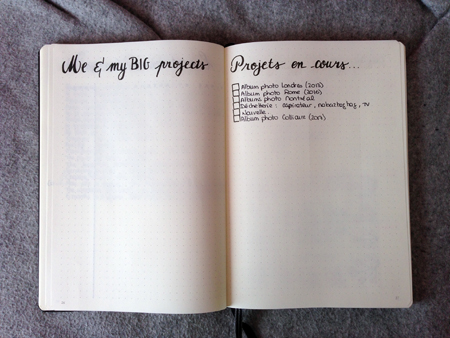 Me & my BIG projects
Projets en cours...
Album photo Londres (2015)
Album photo Rome (2016)
Album photo Montréal
Déchetterie : aspirateur, , TV
Nouvelle
Album photo (2017)